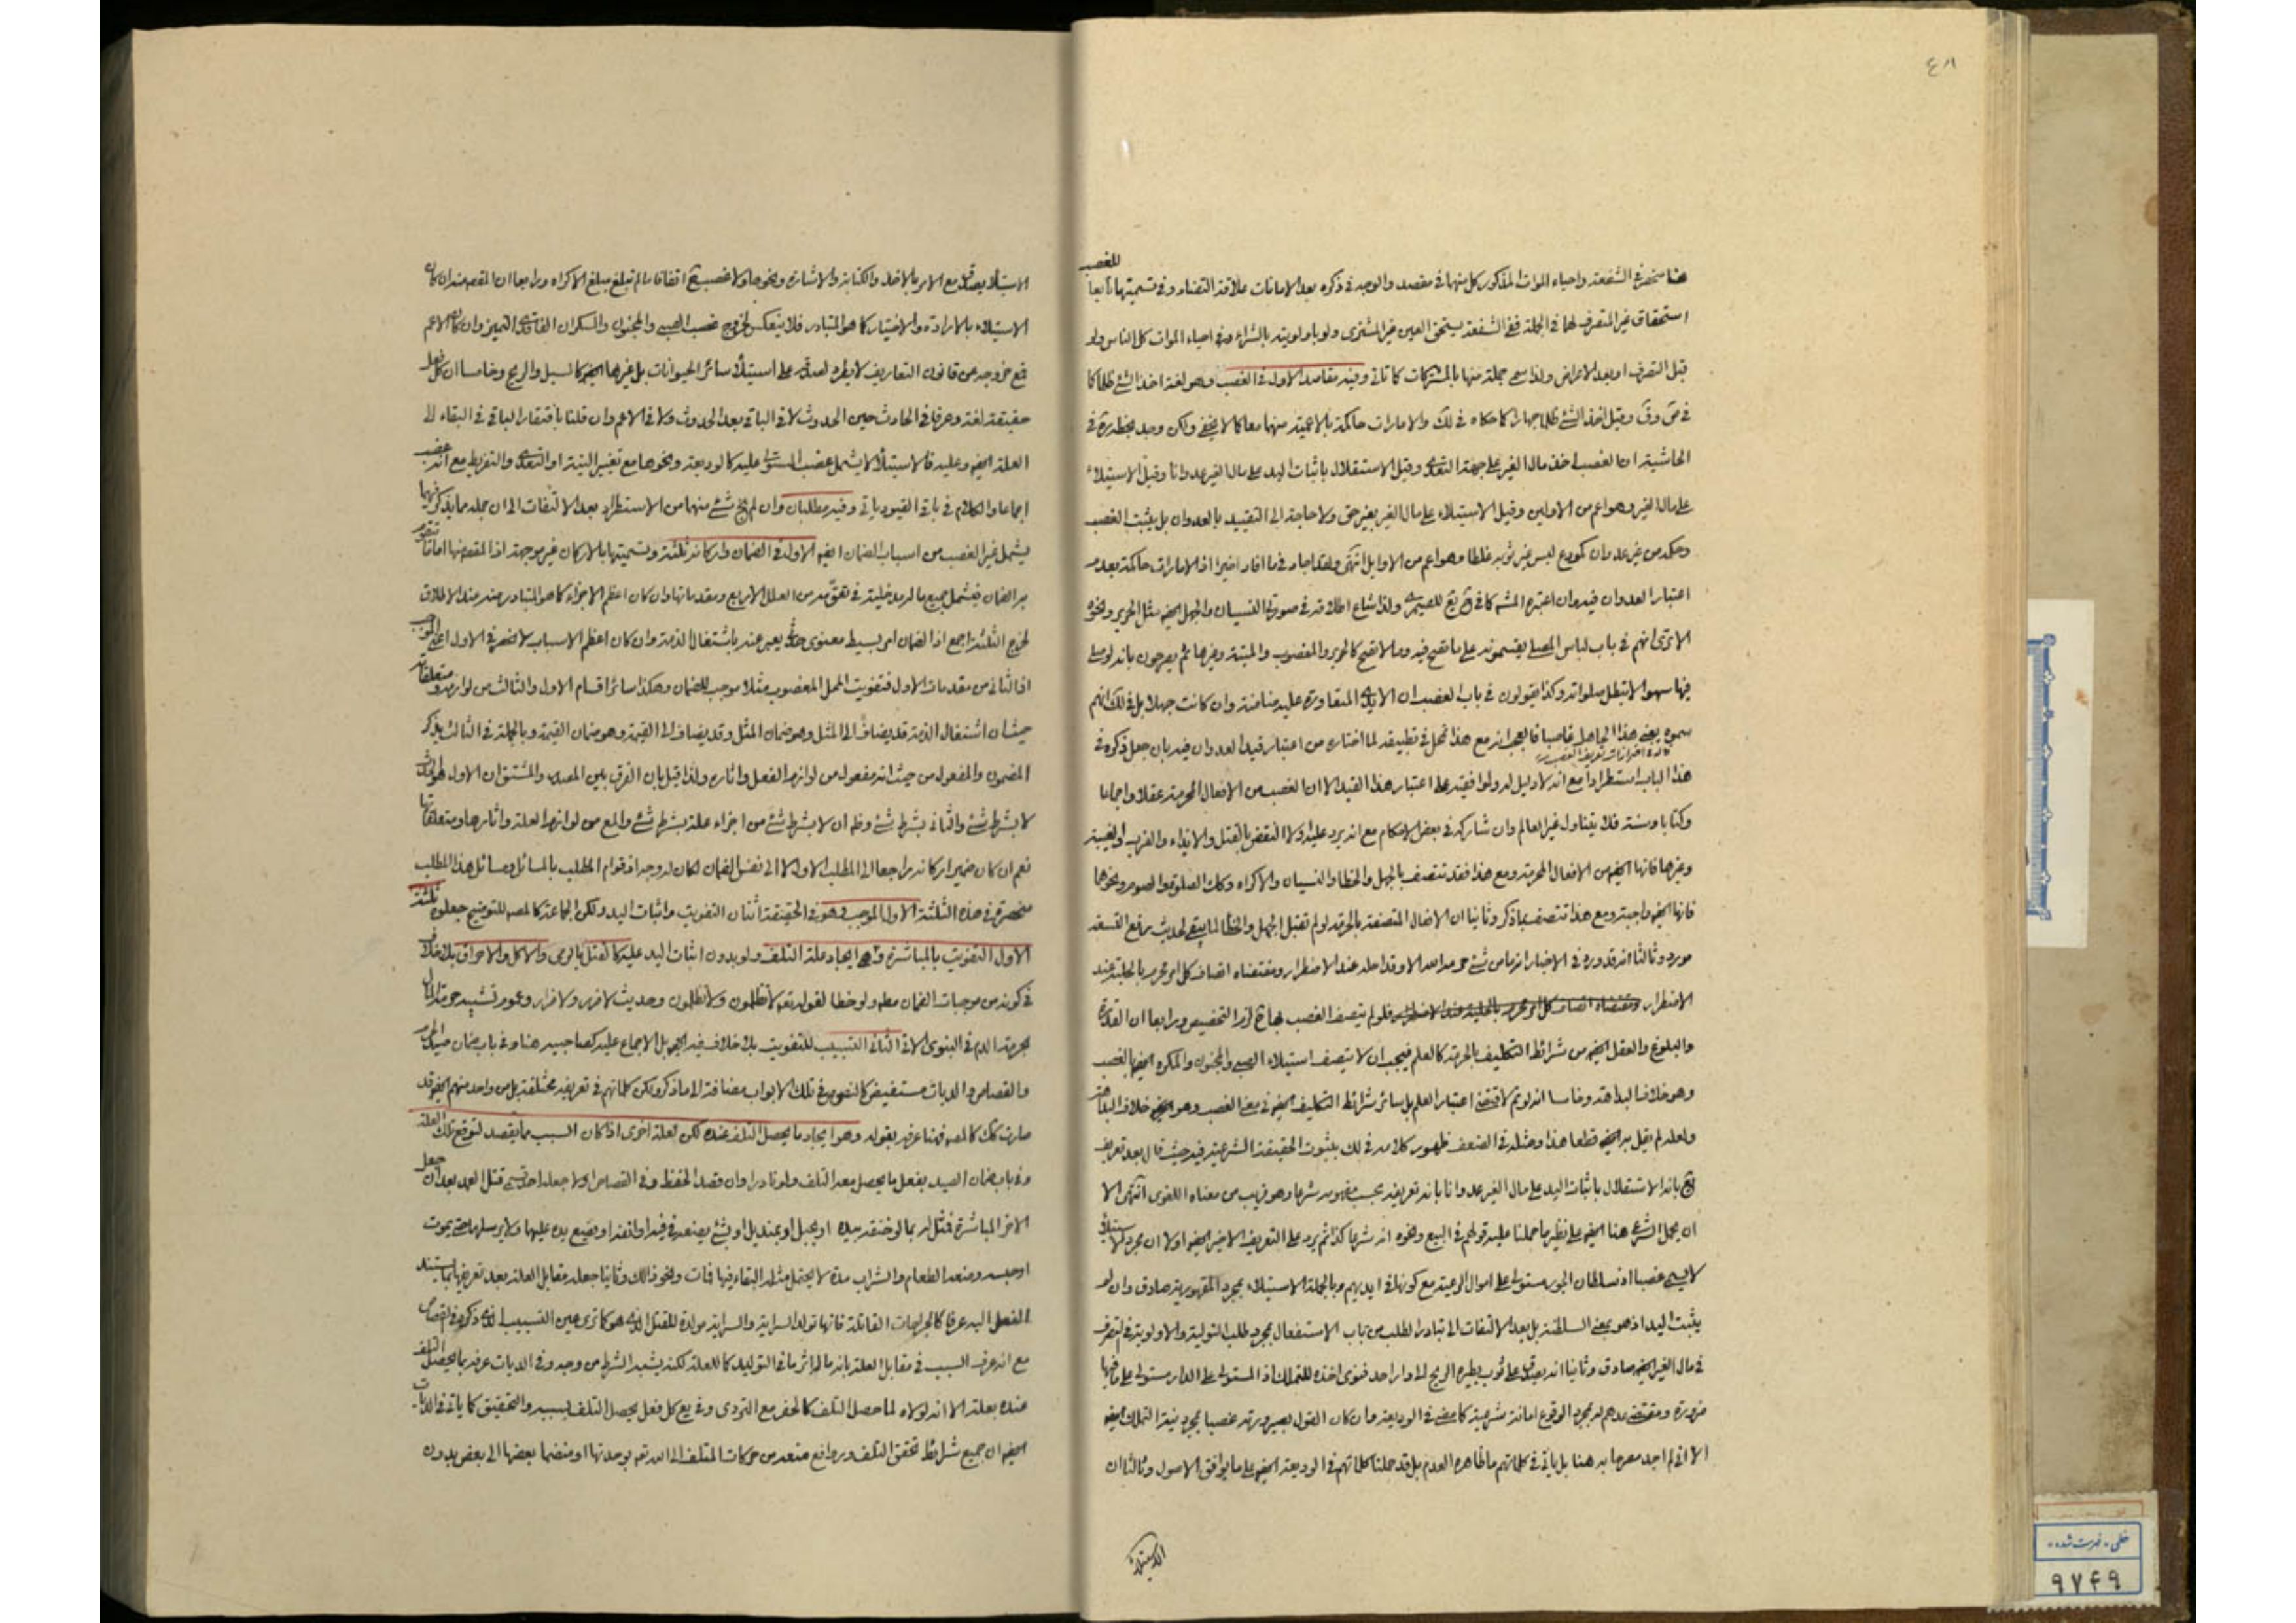 ٤٨
للغصب
هنا منحصر في الشفعة واحياء الموات المذكور كل منهما في مقصد والوجه في ذكره بعد الامانات علاقة التضاد وفي تسميتهما تابعا
استحقاق غير المتصرف لهما في الجملة ففي الشفعة يستحق العين غير المشترى ولو باولويته بالشراء وفي احياء الموات كل الناس ولو
قبل التصرف او بعد الاعراض ولذا سمى جملة منها بالمشتركات كما تاتى وفيه مقاصد الاول في الغصب وهو لغة اخذ الشئ ظلما كما
في ص وق وقيل اخذ الشئ ظلما جهارا كما حكاه في لك والامارات حاكمة بالاعمية منهما معا كما لا يخفى ولكن وجد بخطه ره في
الحاشية ان الغصب اخذ مال الغير على جهة التعدى وقيل الاستقلال باثبات اليد على مال الغير عدوانا وقيل الاستيلاء
على مال الغير وهو اعم من الاولين وقيل الاستيلاء على مال الغير بغير حق ولا حاجة الى التقييد بالعدوان بل يثبت الغصب
وحكمه من غير عدوان كمودع لبس غير ثوبه غلطا وهو اعم من الاوايل انتهى ولقد اجاد في ما افاد اخيرا اذ الامارات حاكمة بعدم
اعتبار العدوان فيه وان اعتبره المشه كما في تبع للصيمرى ولذا شاع اطلاقه في صورتى النسيان والجهل ايضه مثل الحرير ونحوه
الا ترى انهم في باب لباس المصلى يقسمونه على ما تصح فيه وما لا تصح كالحرير والمغصوب والميتة وغيرها ثم يصرحون بانه لو صلى
فيها سهوا لا تبطل صلواته وكذا يقولون في باب الغصب ان الايدى المتعاورة عليه ضامنة وان كانت جهلا بل في لك انهم
سموه يعنى هذا الجاهل غاصبا فالعجب انه مع هذا تمحل في تطبيقه لما اختاره من اعتبار قيد العدوان فيه بان جعل ذكره في
هذا الباب استطرادا مع انه لا دليل له ولموافقيه على اعتبار هذا القيد الا ان الغصب من الافعال المحرمة عقلا واجماعا
وكتابا وسنة فلا يتناول غير العالم وان شاركه في بعض الاحكام مع انه يرد عليه اولا النقض بالقتل والايذاء والضرب والغيبة
وغيرها فانها ايضه من الافعال المحرمة ومع هذا فقد تتصف بالجهل والخطا والنسيان والاكراه وكك الصلوة والصوم ونحوها
فانها ايضه واجبة ومع هذا تتصف بما ذكر وثانيا ان الافعال المتصفة بالحرمة لو لم تقبل الجهل والخطا لما يبقى لحديث رفع التسعة
مورد وثالثا انه قد ورد في الاخبار انه ما من شئ حرمه الله الا وقد احله عند الاضطرار ومقتضاه اتصاف كل امر محرم بالحلية عند
الاضطرار ومقتضاه اتصاف كل امر محرم بالحلية عند الاضطرار فلو لم يتصف الغصب بها ح لزم التخصيص ورابعا ان القدرة
والبلوغ والعقل ايضه من شرائط التكليف بالحرمة كالعلم فيجب ان لا يتصف استيلاء الصبى والمجنون والمكره ايضه بالغصب
وهو خلاف البداهة وخامسا انه لو تم لاقتضى اعتبار العلم بل سائر شرائط التكليف ايضه في معنى الغصب وهو ايضه خلاف البداهة
ولعله لم يقل به ايضه قطعا هذا ومثله في الضعف ظهور كلامه في لك بثبوت الحقيقة الشرعية فيه حيث قال بعد تعريف
بانه الاستقلال باثبات اليد على مال الغير عدوانا بانه تعريفه بحسب مفهومه شرعا وهو قريب من معناه اللغوى انتهى الا
ان يحمل الشرع هنا ايضه على نظير ما حملنا عليه قولهم في البيع ونحوه انه شرعا كذا ثم يرد على التعريف الاخير ايضه اولا ان مجرد الاستيلاء
لا يسمى غصبا اذ سلطان الجور مستولى على اموال الرعية مع كونها في ايديهم وبالجملة الاستيلاء بمجرد المقهورية صادق وان لم
يثبت اليد اذ هو بمعنى السلطنة بل بعد الالتفات الى تبادر الطلب من باب الاستفعال بمجرد طلب التولية والاولوية في التصرف
في مال الغير ايضه صادق وثانيا انه يصدق على ثوب يطيره الريح الى دار احد فنوى اخذه للتملك اذ المستولى على الدار مستولى على ما فيها
ضرورة ومقتضى عدهم له بمجرد الوقوع امانة شرعية كما مضى في الوديعة وان كان القول بصيرورته غصبا بمجرد نية التملك ايضه
الا انى لم اجد مصرحا به هنا بل ياتى في كلماتهم ما ظاهره العدم بل قد حملنا كلماتهم في الوديعة ايضه على ما يوافق الاصول وثالثا ان
الاستيلاء
الاستيلاء يصدق مع الامر بالاخذ والكتابة والاشارة ونحوها ولا غصب ح اتفاقا ما لم تبلغ مبلغ الاكراه ورابعا ان المقص منه ان كان
الاستيلاء بالارادة والاختيار كما هو المتبادر فلا ينعكس لخروج غصب الصبى والمجنون والسكران الفاقدى التميز وان كان الاعم
فمع خروجه عن قانون التعاريف لا يطرد لصدقه على استيلاء سائر الحيوانات بل غيرها ايضه كالسيل والريح وخامسا ان كل فعل
حقيقة لغة وعرفا في الحادث حين الحدوث لا في الباقى بعد الحدوث ولا في الاعم وان قلنا بافتقار الباقى في البقاء الى
العلة ايضه وعليه فالاستيلاء لا يشمل غصب المستولى عليه كالوديعة ونحوها مع تغيير النية او التعدى والتفريط مع انه غصب
اجماعا والكلام في باقى القيود ياتى وفيه مطلبان وان لم يخ شئ منهما من الاستطراد بعد الالتفات الى ان جملة ما يذكر فيهما
يشمل غير الغصب من اسباب الضمان ايضه الاول في الضمان واركانه ثلثة وتسميتها بالاركان غير موجهة اذ المقص منها اما ما تتقوم
به الضمان فيشمل جميع ما له مدخلية في تحققه من العلل الاربع ومقدماتها وان كان اعظم الاجزاء كما هو المتبادر منه عند الاطلاق
لخرج الثلثة اجمع اذ الضمان امر بسيط معنوى يعبر عنه باشتغال الذمة وان كان اعظم الاسباب لانحصر في الاول اعنى الموجب
اذ الثانى من مقدمات الاول فتفويت المحل المغصوب مثلا موجب للضمان وهكذا سائر اقسام الاول والثالث من لوازمه ومتعلقاته
حيث ان اشتغال الذمة قد يضاف الى المثل وهو ضمان المثل وقد يضاف الى القيمة وهو ضمان القيمة وبالجملة في الثالث يذكر
المضمون والمفعول من حيث انه مفعول من لوازم الفعل واثاره ولذا قيل بان الفرق بين المصدر والمشتق ان الاول هو الحدث
لا بشرط شئ والثانى بشرط شئ وظه ان لا بشرط شئ من اجزاء علة بشرط شئ والمع من لوازم العلة واثارها ومتعلقاتها
نعم ان كان ضمير اركانه راجعا الى المطلب الاول لا الى نفس الضمان لكان له وجه اذ قوام المطلب بالمسائل ومسائل هذا المطلب
منحصرة في هذه الثلثة الاول الموجب وهو في الحقيقة اثنان التفويت واثبات اليد ولكن الجماعة كالمصه للتوضيح جعلوه ثلثة
الاول التفويت بالمباشرة وهى ايجاد علة التلف ولو بدون اثبات اليد عليه كالقتل بالرمى والاكل والاحراق بلا خلاف
في كونه من موجبات الضمان مطه ولو خطا لقوله تعه لا تظلمون ولا تظلمون وحديث لا ضرر ولا ضرار وعموم تشبيه حرمة المال
بحرمة الدم في النبوى الاتى الثانى التسبيب للتفويت بلا خلاف فيه ايضه بل الاجماع عليه كصاحبيه هنا وفي باب ضمان صيد الحرم
والقصاص والديات مستفيض كالنصوص في تلك الابواب مضافة الى ما ذكر ولكن كلماتهم في تعريفه مختلفة بل من واحد منهم ايضه قد
صارت كك كالمصه فهنا عرفه بقوله وهو ايجاد ما يحصل التلف عنده لكن لعلة اخرى اذا كان السبب مما يقصد لتوقع تلك العلة
وفي باب ضمان الصيد بفعل ما يحصل معه التلف ولو نادرا وان قصد الحفظ وفي القصاص اولا جعله احد قسمى قتل العمد بعد ان جعل
الاخر المباشرة فمثل له بما لو خنقه بيده او بحبل او بمنديل او بشئ يضعه في فيه او انفه او يضع يده عليهما ولا يرسلهما حتى يموت
او حبسه ومنعه الطعام والشراب مدة لا يحتمل مثله البقاء فيها فمات ونحو ذلك وثانيا جعله مقابل العلة بعد تعريفها بما يستند
الفعل اليه عرفا كالجراحات القاتلة فانها تولد السراية والسراية مولدة للقتل الذى هو كما ترى عين التسبيب الذى ذكره في القصاص
مع انه عرف السبب في مقابل العلة بانه ما له اثر ما في التوليد كما للعلة لكنه يشبه الشرط من وجه وفي الديات عرفه بما يحصل التلف
عنده بعلة الا انه لولاه لما حصل التلف كالحفر مع التردى وفي يع كل فعل يحصل التلف بسببه والتحقيق كما ياتى في الديات
ايضه ان جميع شرائط تحقق التلف ورفع موانعه من حركات المتلف الى الله تعه بوحدتها او منضما بعضها الى بعض بدون
خطى - فهرست شده
۹۷۴۹